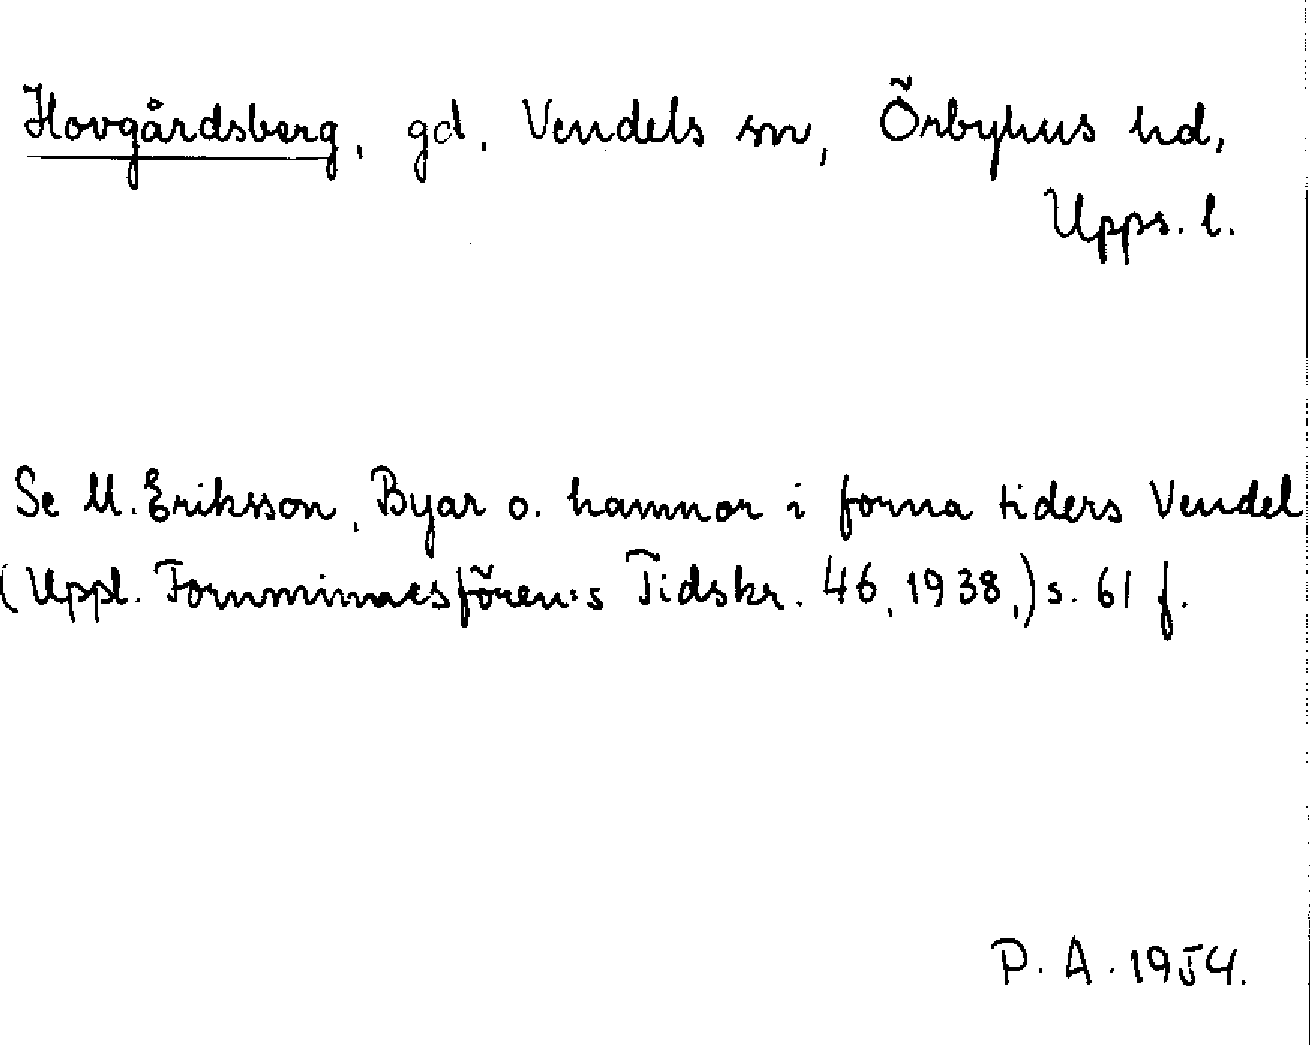 Hovgårdsberg, gd, Vendels sn, Örbyhus hd,
Upps. l.
Se M. Eriksson, Byar o. hamnor i forna tiders Vendel
(Uppl. Fornminnesfören:s Tidskr. 46, 1938,) s. 61 f.
P. A. 1954.